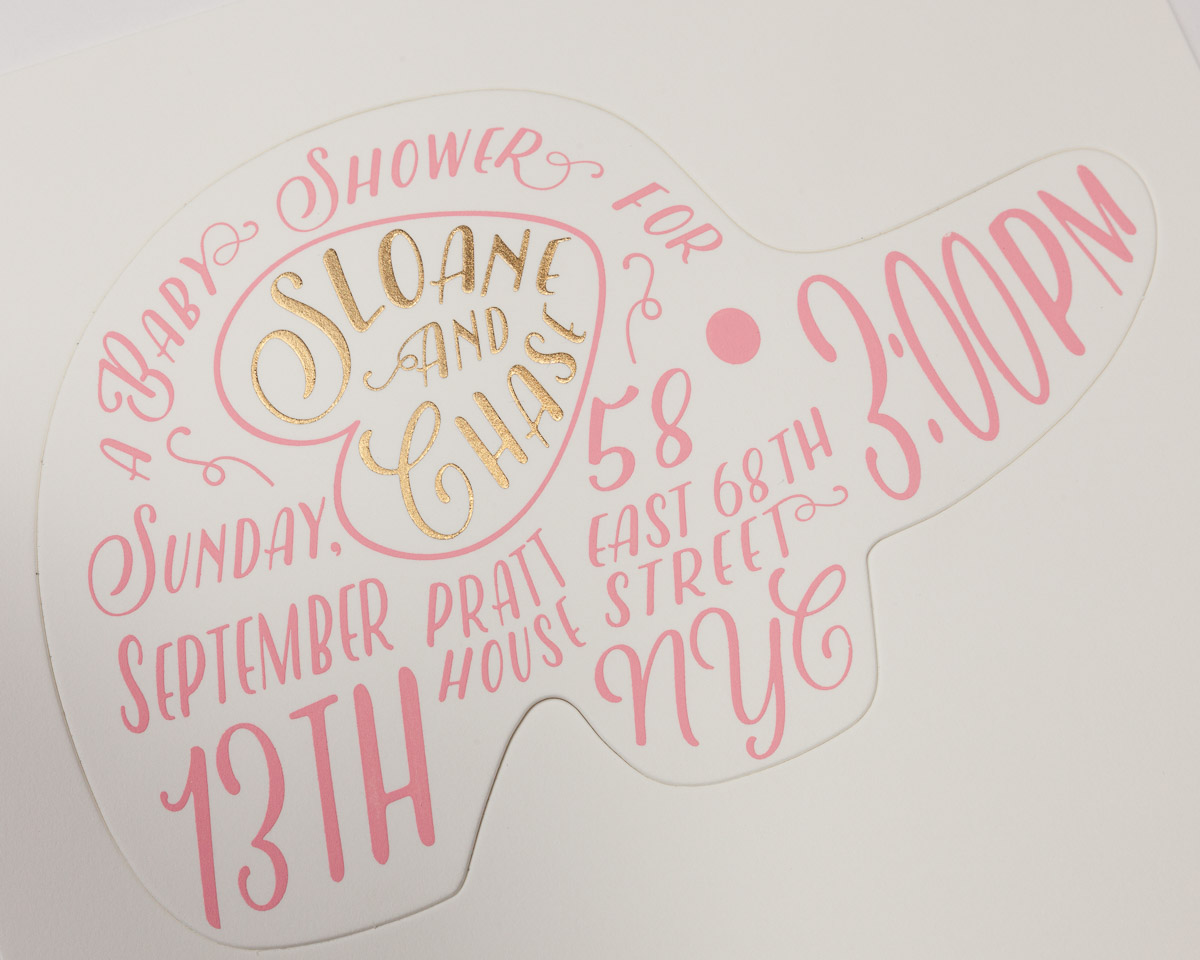 A BABY SHOWER FOR
SLOANE
AND
CHASE
SUNDAY,
SEPTEMBER
13TH
PRATT
HOUSE
58
EAST 68TH
STREET
NYC
3:00PM